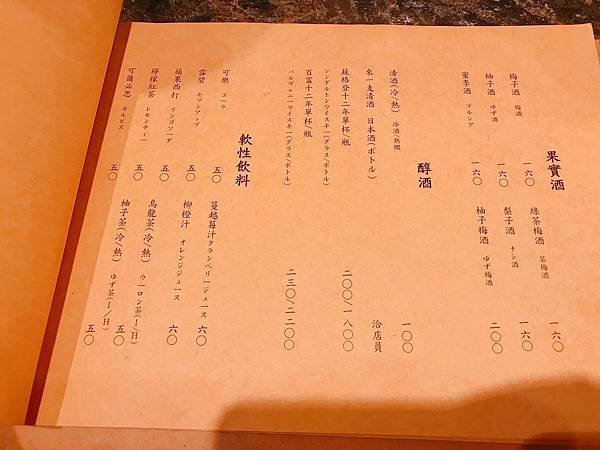 果實酒
梅子酒 梅酒 一六〇
綠茶梅酒 茶梅酒 一六〇
柚子酒 ゆず酒 一六〇
梨子酒 ナシ酒 一六〇
蜜李酒 プルシア 一六〇
柚子梅酒 ゆず梅酒 二〇〇
醇酒
清酒(冷/熱) 冷酒/熱燗 一〇〇
來一支清酒 日本酒(ボトル) 洽店員
蘇格登十二年單杯/瓶 二〇〇/一八〇〇
シングルトンウイスキー(グラス/ボトル)
百富十二年單杯/瓶 二三〇/二二〇〇
バルヴェニーウイスキー(グラス/ボトル)
軟性飲料
可樂 コーラ 五〇
蔓越莓汁 クランベリージュース 六〇
雪碧 セブンアップ 五〇
柳橙汁 オレンジジュース 六〇
蘋果西打 リンゴソーダ 五〇
烏龍茶(冷/熱) ウーロン茶(I/H) 五〇
檸檬紅茶 レモンティー 五〇
柚子茶(冷/熱) ゆず茶(I/H) 五〇
可爾必思 カルピス 五〇